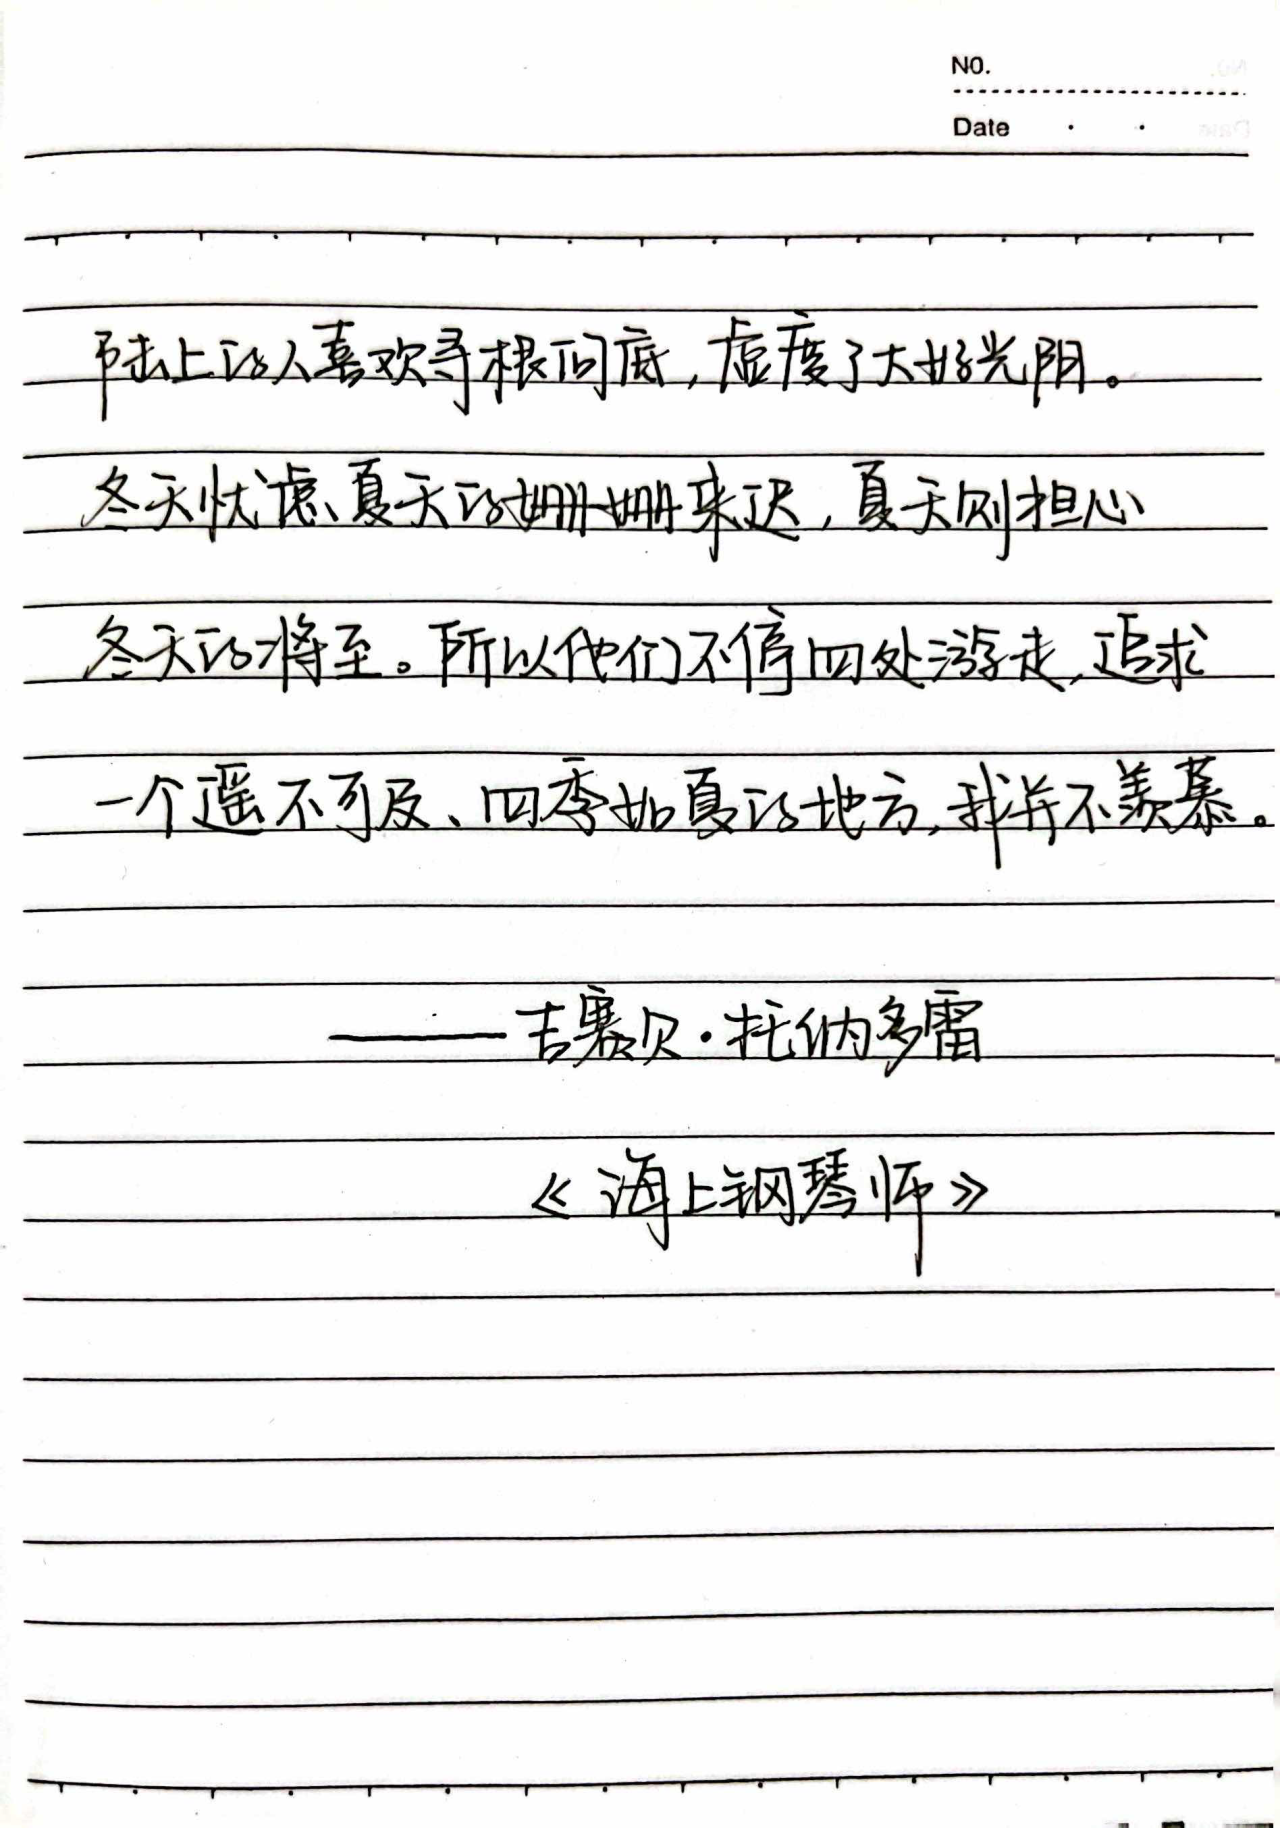 NO.
Date
陆上的人喜欢寻根问底，虚度了大好光阴。
冬天忧虑夏天的姗姗来迟，夏天则担心
冬天的将至。所以他们不停四处游走，追求
一个遥不可及、四季如夏的地方，我并不羡慕。
——吉赛贝·托纳多雷
《海上钢琴师》